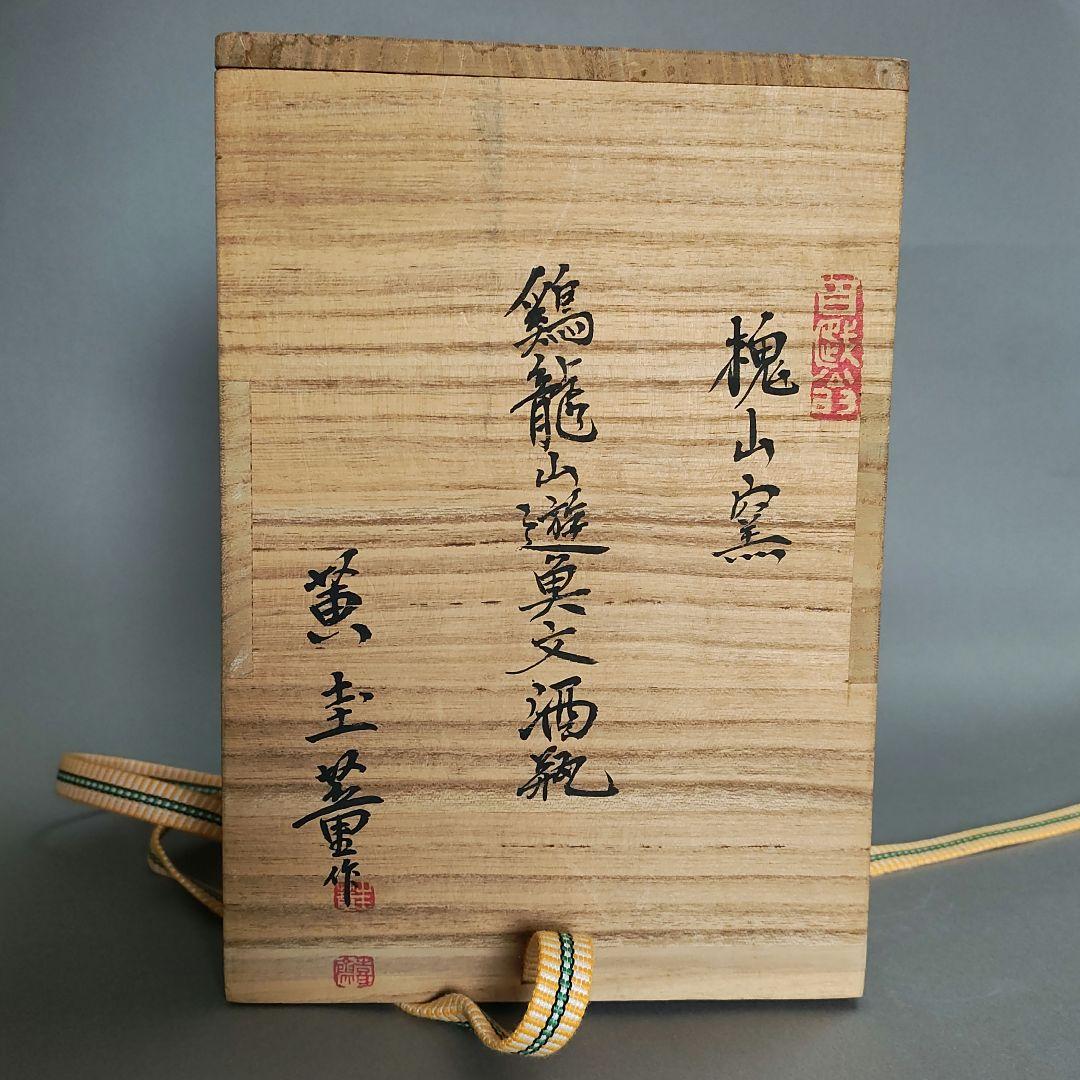 槐山窯
鷄龍山遊魚文酒瓶
黄圭董作